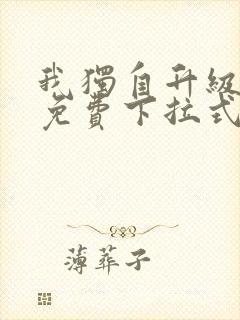 我獨自升級
免費下拉式
薄葬子